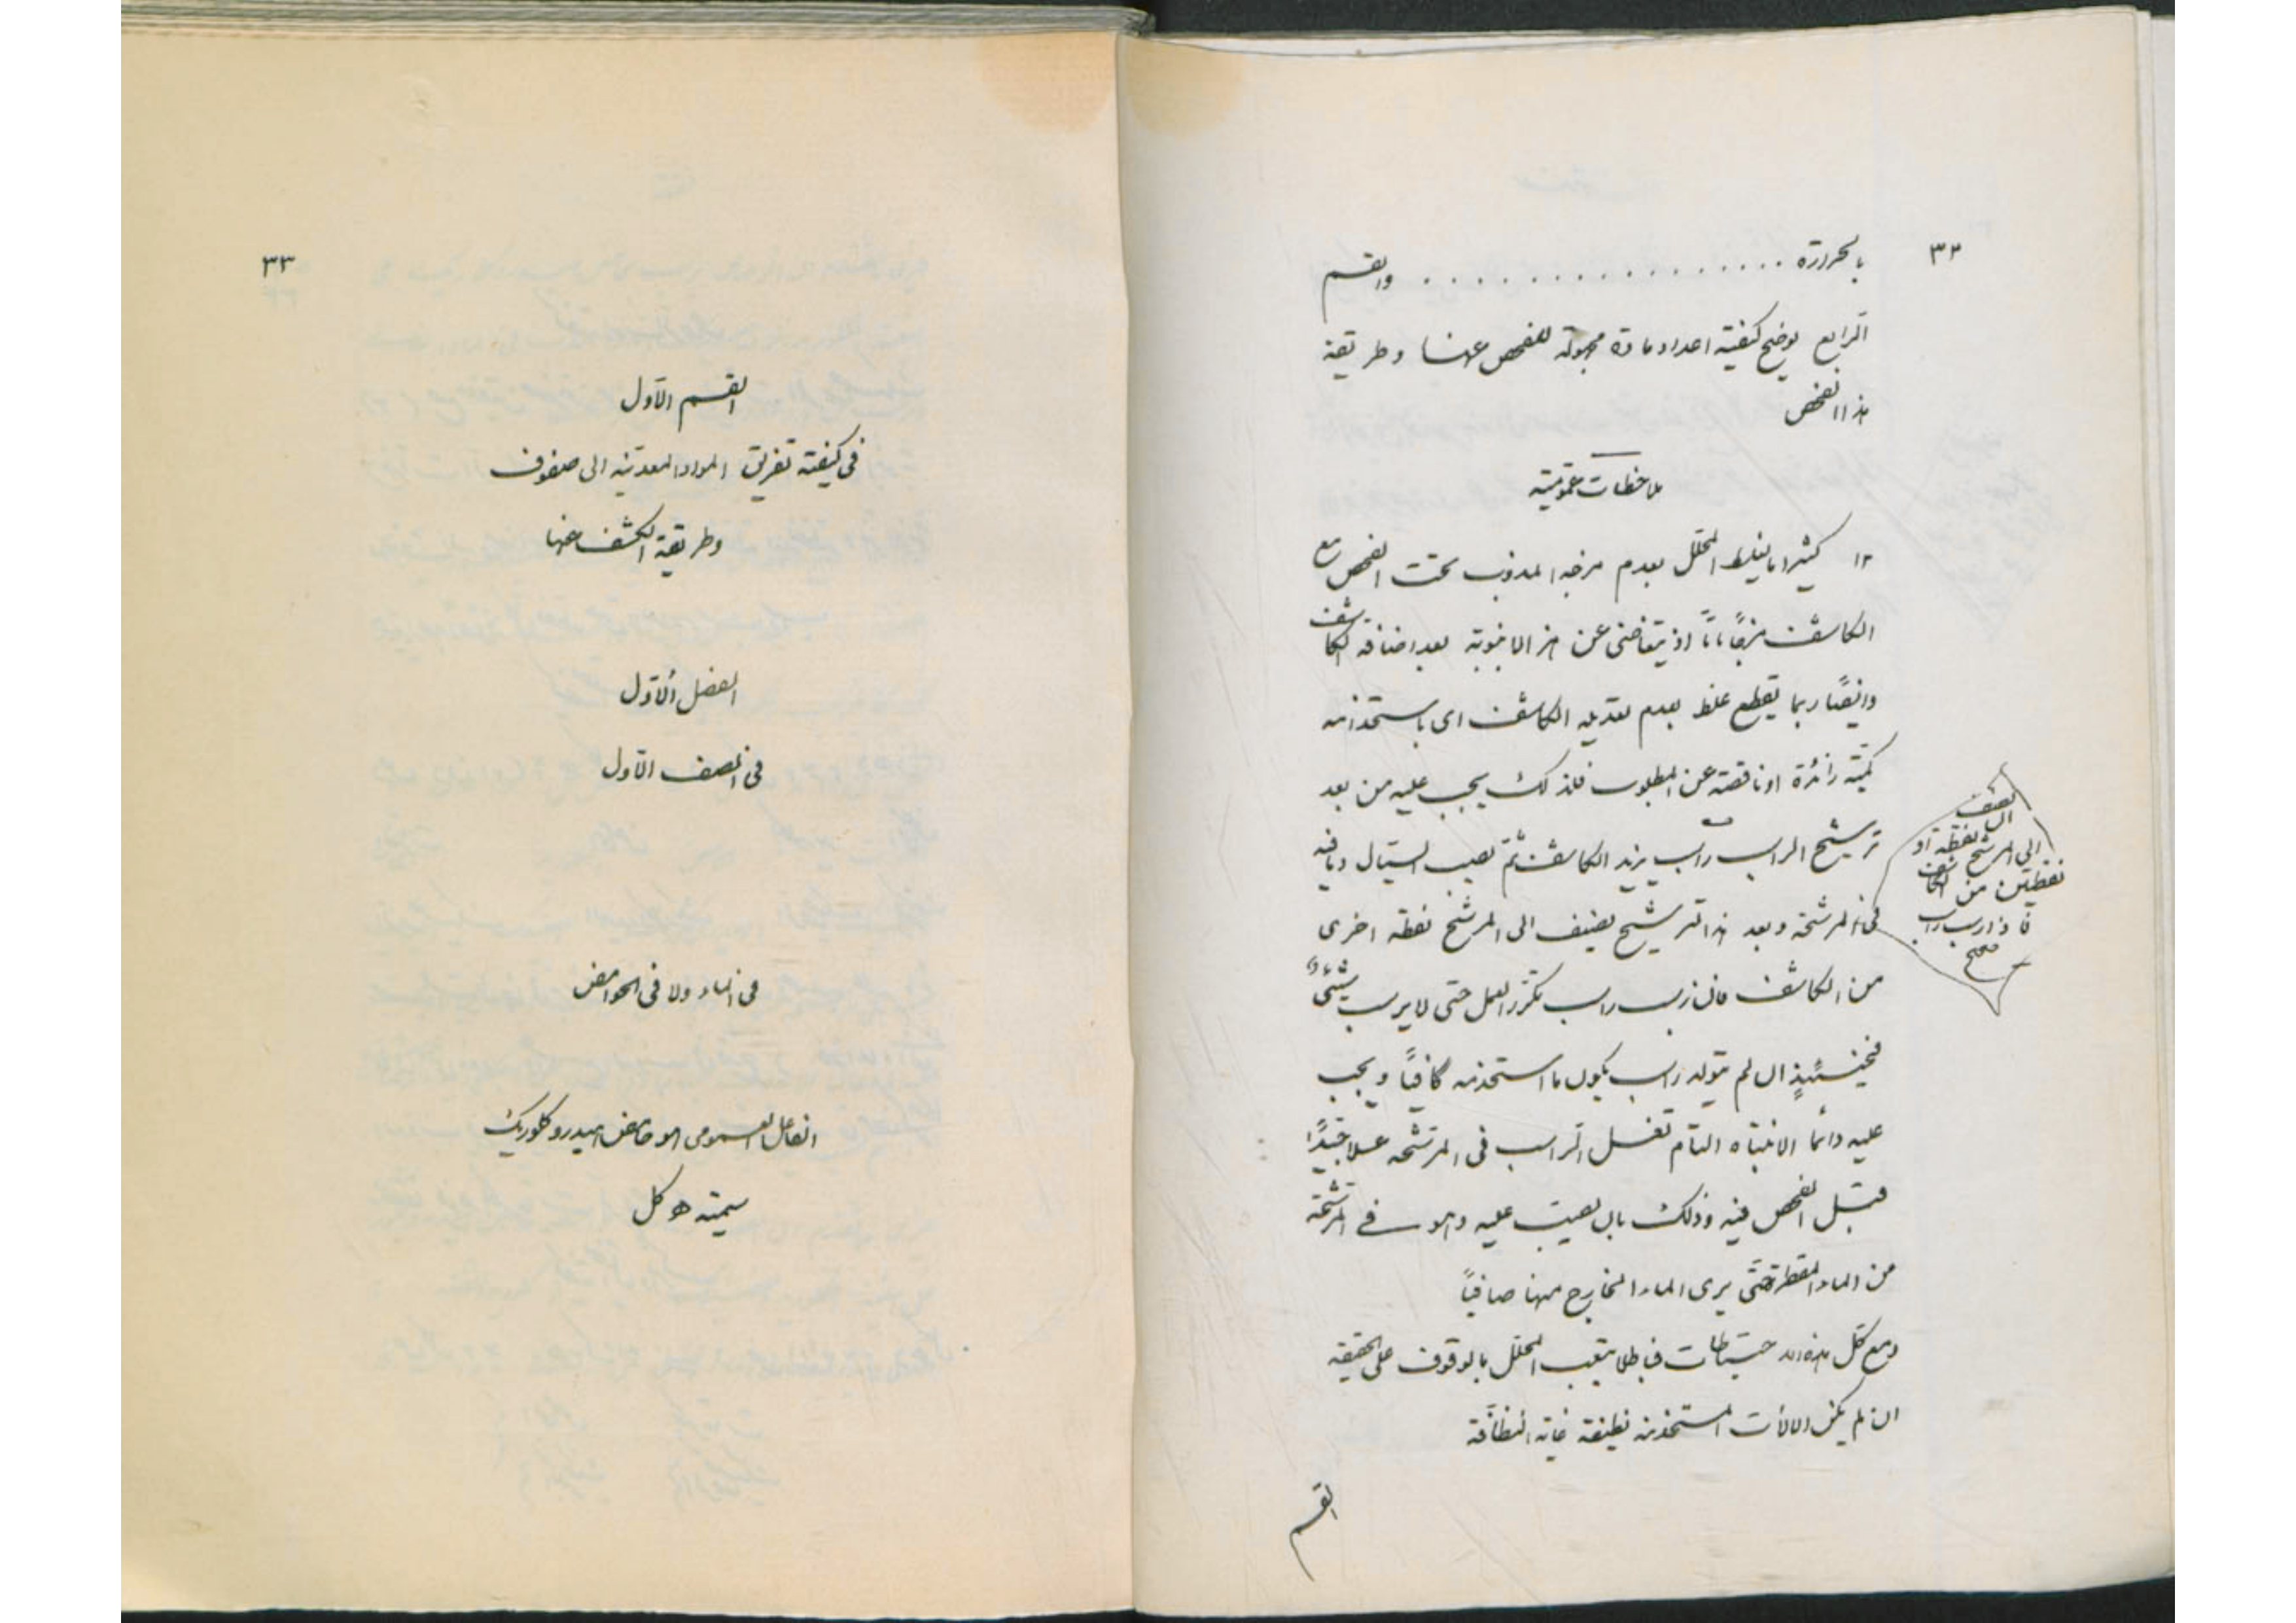 ٣٢
بالحرارة . . . . . . . . . . . . . . . . والقسم
الرابع يوضح كيفية اعداد مادة مجهولة للفحص عنها وطريقة
هذا الفحص
ملاحظات عمومية
١٢ كثيرا ما يغلط المحلل بعدم مزجه المذوب تحت الفحص مع
الكاشف مزجًا تامًّا اذ يتغاضى عن هز الانبوبة بعد اضافة الكاشف
وايضًا ربما يقطع غلط بعدم تعديله الكاشف اى باستخدامه
كمية زائدة او ناقصة عن المطلوب فلذلك يجب عليه من بعد
ترشيح الراسب يزيد الكاشف ثم يصب السيال وما فيه
فى المرشحة وبعد هذا الترشيح يضيف الى المرشح نقطة اخرى
من الكاشف فان رسب راسب يكرر العمل حتى لا يرسب شئ
فحينئيذٍ ان لم يتولد راسب يكون ما استخدمه كافيًا ويجب
عليه دائما الانتباه التام لغسل الراسب فى المرشحة غسلا جيدًا
قبل الفحص فيه وذلك بان يصب عليه وهو فى المرشحة
من الماء المقطر حتى يرى الماء الخارج منها صافيًا
ومع كل هذه الاحتياطات فباطلا يتعب المحلل بالوقوف على الحقيقه
ان لم يكن الالات المستخدمه نظيفة غاية النظافة
القسم
ان يضيف
الى المرشح نقطة او
نقطتين من الكاشف
فاذا رسب راسب
صح
٣٣
القسم الاول
فى كيفية تفريق المواد المعدنية الى صفوف
وطريقة الكشف عنها
الفصل الاول
فى الصف الاول
فى الماء ولا فى الحوامض
الفاعل العمومى هو حامض الهيدروكلوريك
سيمته ه كل